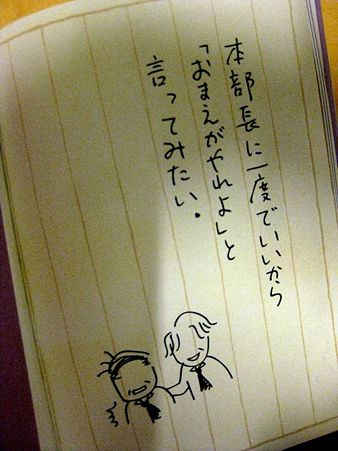 本部長に一度でいいから
「おまえがやれよ」と
言ってみたい。